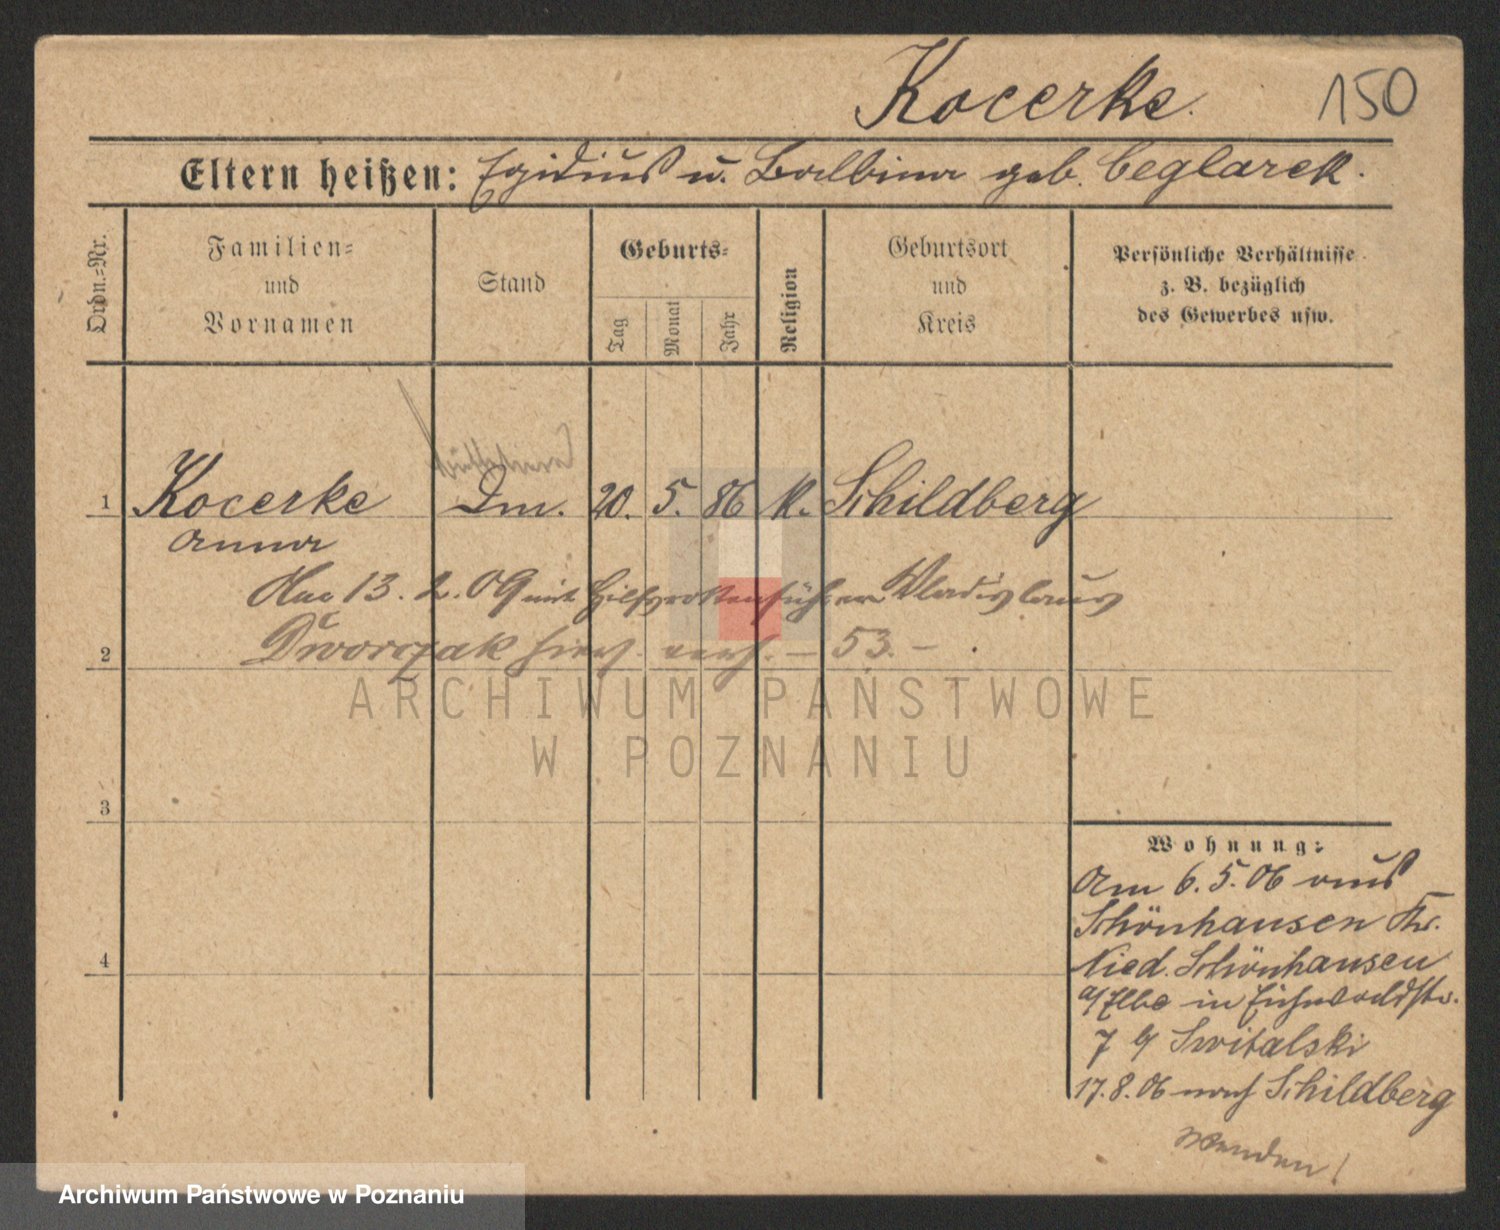 Kocerke.
150
Eltern heißen: Egidius u. Balbina geb. Ceglarek.
Ordn.-Nr.
Familien-
und
Vornamen
Stand
Geburts-
Tag
Monat
Jahr
Religion
Geburtsort
und
Kreis
Persönliche Verhältnisse
z. B. bezüglich
des Gewerbes usw.
1 Kocerke Dm. 20. 5. 86 k. Schildberg
Anna
13. 2. 09 mit Hilfsrottenführer Wladislaus
2 Dworczak hier verh. – 53. –
ARCHIWUM PAŃSTWOWE
W POZNANIU
3
4
Wohnung:
Am 6.5.06 aus
Schönhausen Kr.
Nied. Schönhausen
a/Elbe in Eichwaldstr.
7 b/ Switalski
17.8.06 nach Schildberg
wenden!
Archiwum Państwowe w Poznaniu